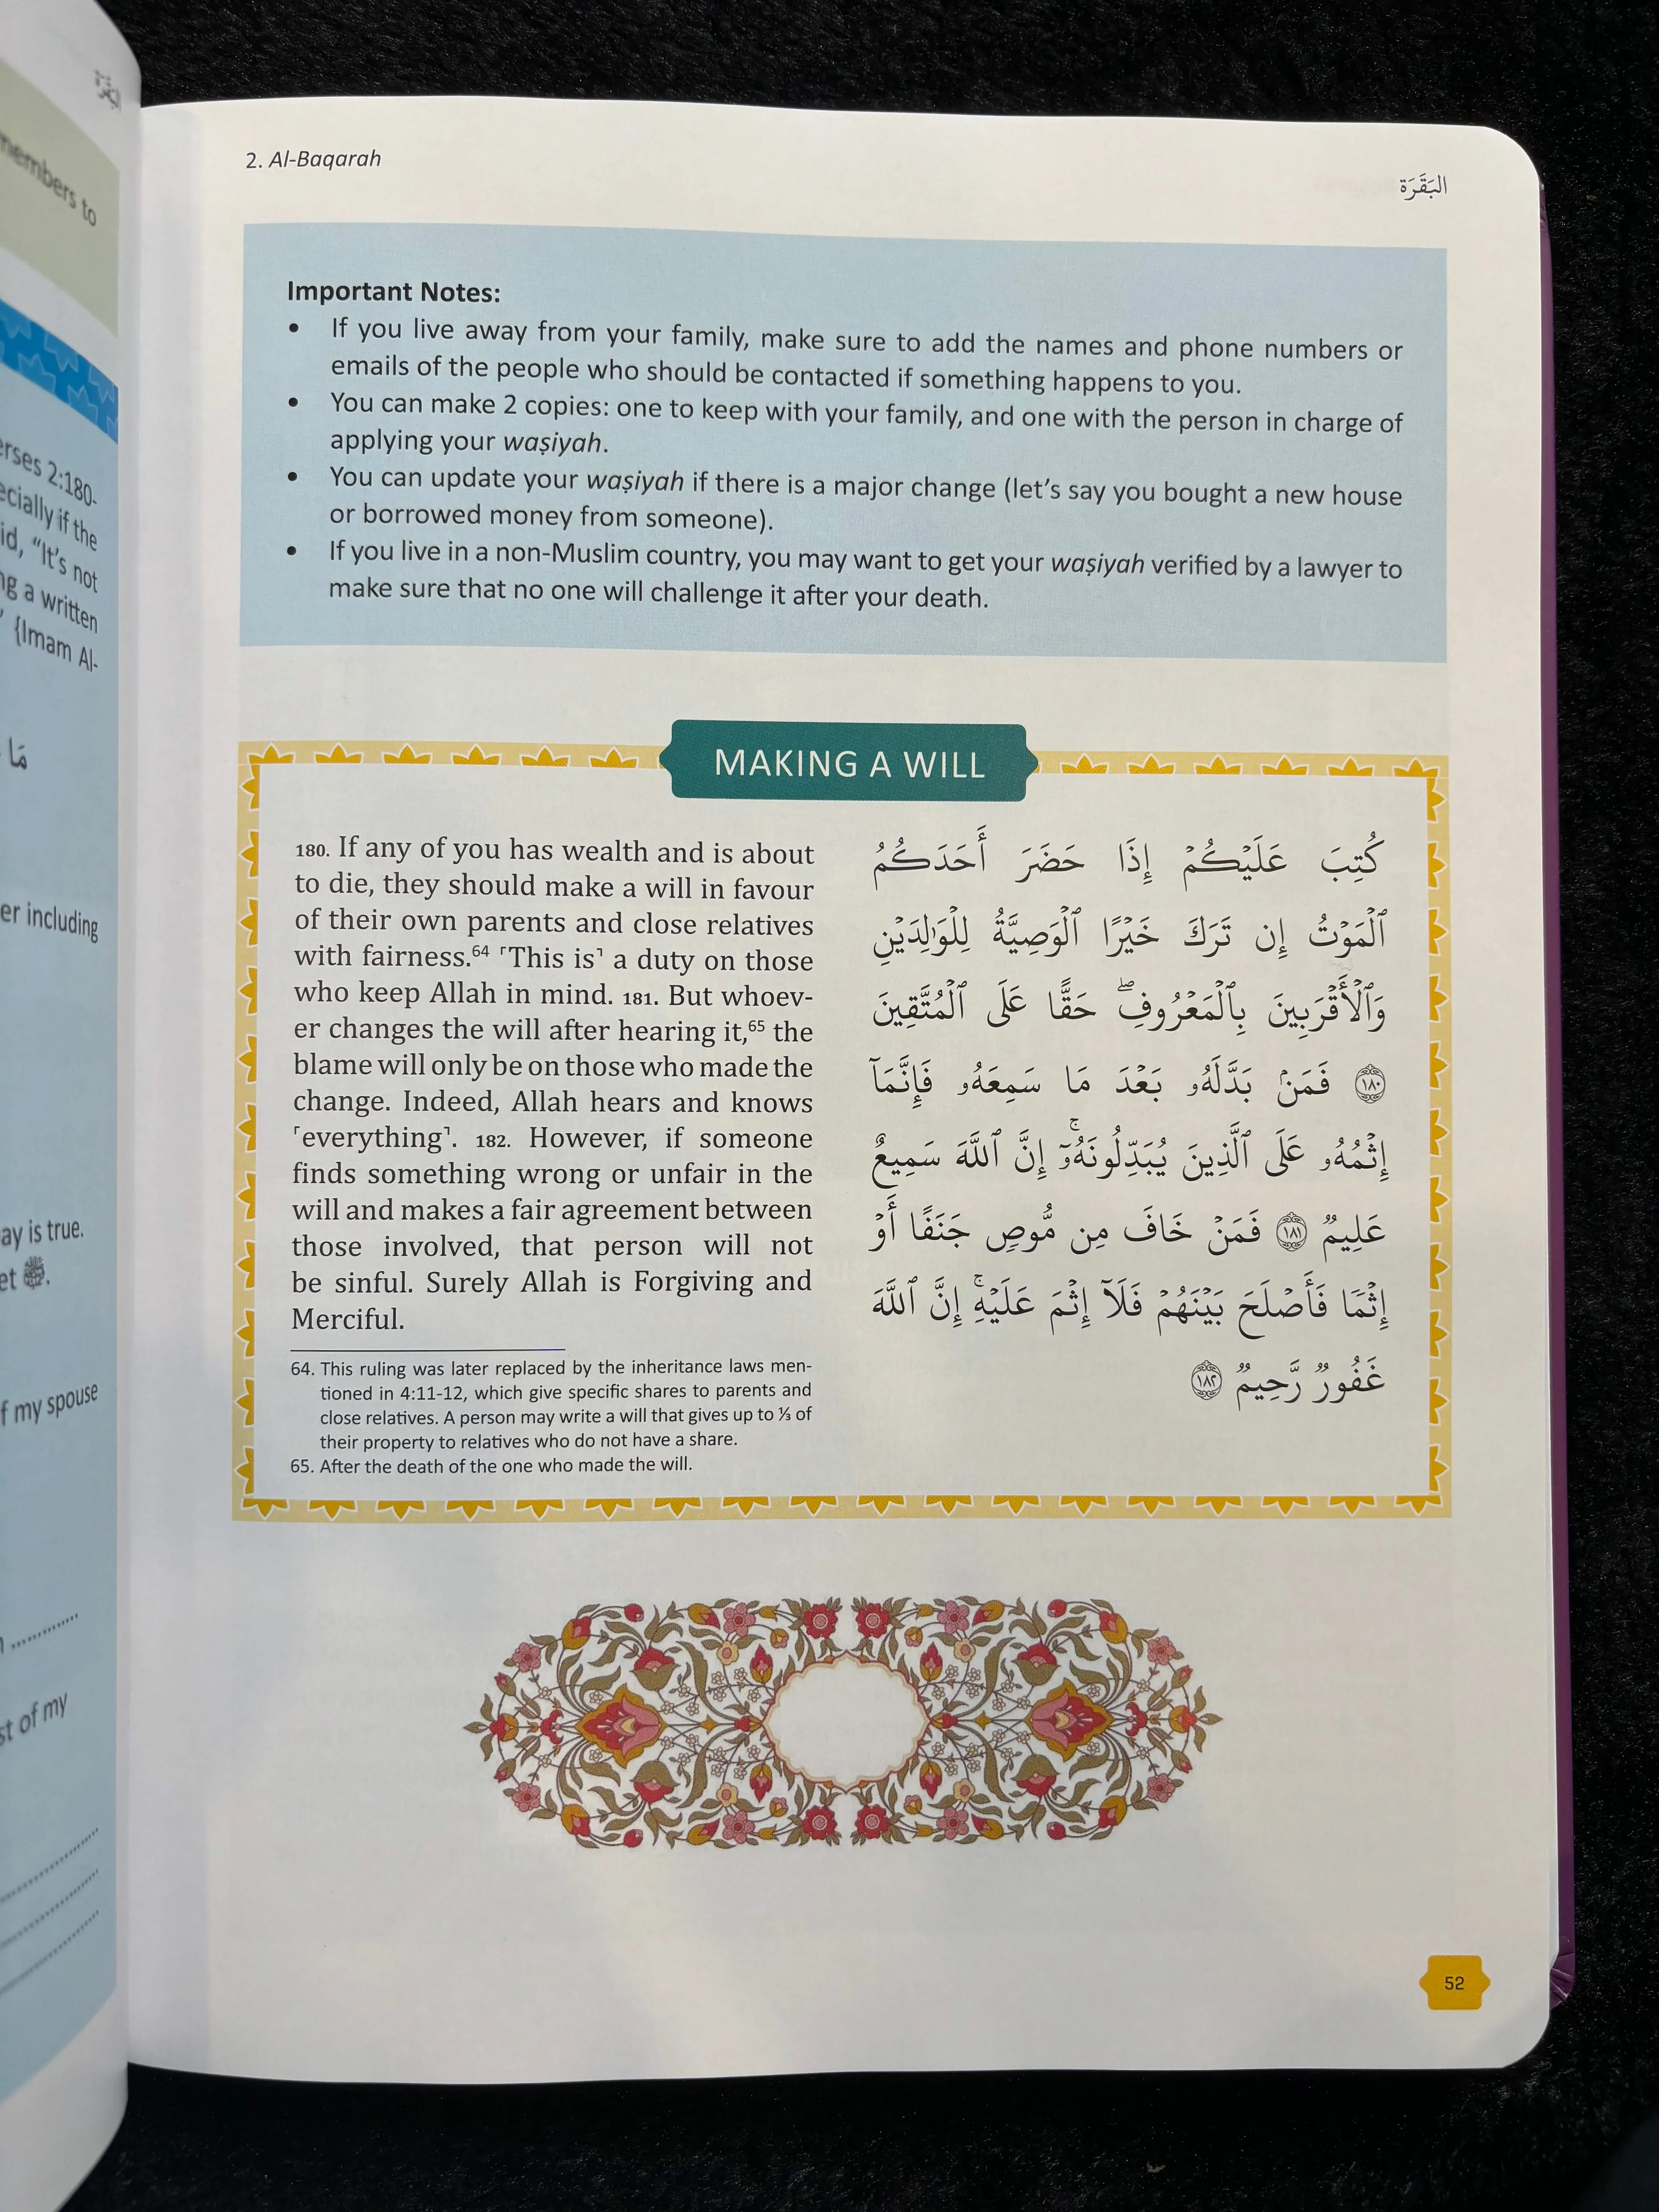 members to
erses 2:180-
ecially if the
id, “It’s not
ng a written
{Imam Al-
مَا
er including
ay is true.
et ﷺ.
f my spouse
st of my
2. Al-Baqarah
البَقَرَة
Important Notes:
• If you live away from your family, make sure to add the names and phone numbers or
emails of the people who should be contacted if something happens to you.
• You can make 2 copies: one to keep with your family, and one with the person in charge of
applying your waṣiyah.
• You can update your waṣiyah if there is a major change (let’s say you bought a new house
or borrowed money from someone).
• If you live in a non-Muslim country, you may want to get your waṣiyah verified by a lawyer to
make sure that no one will challenge it after your death.
MAKING A WILL
180. If any of you has wealth and is about
to die, they should make a will in favour
of their own parents and close relatives
with fairness.⁶⁴ ˹This is˺ a duty on those
who keep Allah in mind. 181. But whoev-
er changes the will after hearing it,⁶⁵ the
blame will only be on those who made the
change. Indeed, Allah hears and knows
˹everything˺. 182. However, if someone
finds something wrong or unfair in the
will and makes a fair agreement between
those involved, that person will not
be sinful. Surely Allah is Forgiving and
Merciful.
64. This ruling was later replaced by the inheritance laws men-
tioned in 4:11-12, which give specific shares to parents and
close relatives. A person may write a will that gives up to ⅓ of
their property to relatives who do not have a share.
65. After the death of the one who made the will.
كُتِبَ عَلَيْكُمْ إِذَا حَضَرَ أَحَدَكُمُ
ٱلْمَوْتُ إِن تَرَكَ خَيْرًا ٱلْوَصِيَّةُ لِلْوَٰلِدَيْنِ
وَٱلْأَقْرَبِينَ بِٱلْمَعْرُوفِ ۖ حَقًّا عَلَى ٱلْمُتَّقِينَ
١٨٠ فَمَنۢ بَدَّلَهُۥ بَعْدَ مَا سَمِعَهُۥ فَإِنَّمَآ
إِثْمُهُۥ عَلَى ٱلَّذِينَ يُبَدِّلُونَهُۥٓ ۚ إِنَّ ٱللَّهَ سَمِيعٌ
عَلِيمٌ ١٨١ فَمَنْ خَافَ مِن مُّوصٍ جَنَفًا أَوْ
إِثْمًا فَأَصْلَحَ بَيْنَهُمْ فَلَآ إِثْمَ عَلَيْهِ ۚ إِنَّ ٱللَّهَ
غَفُورٌ رَّحِيمٌ ١٨٢
52